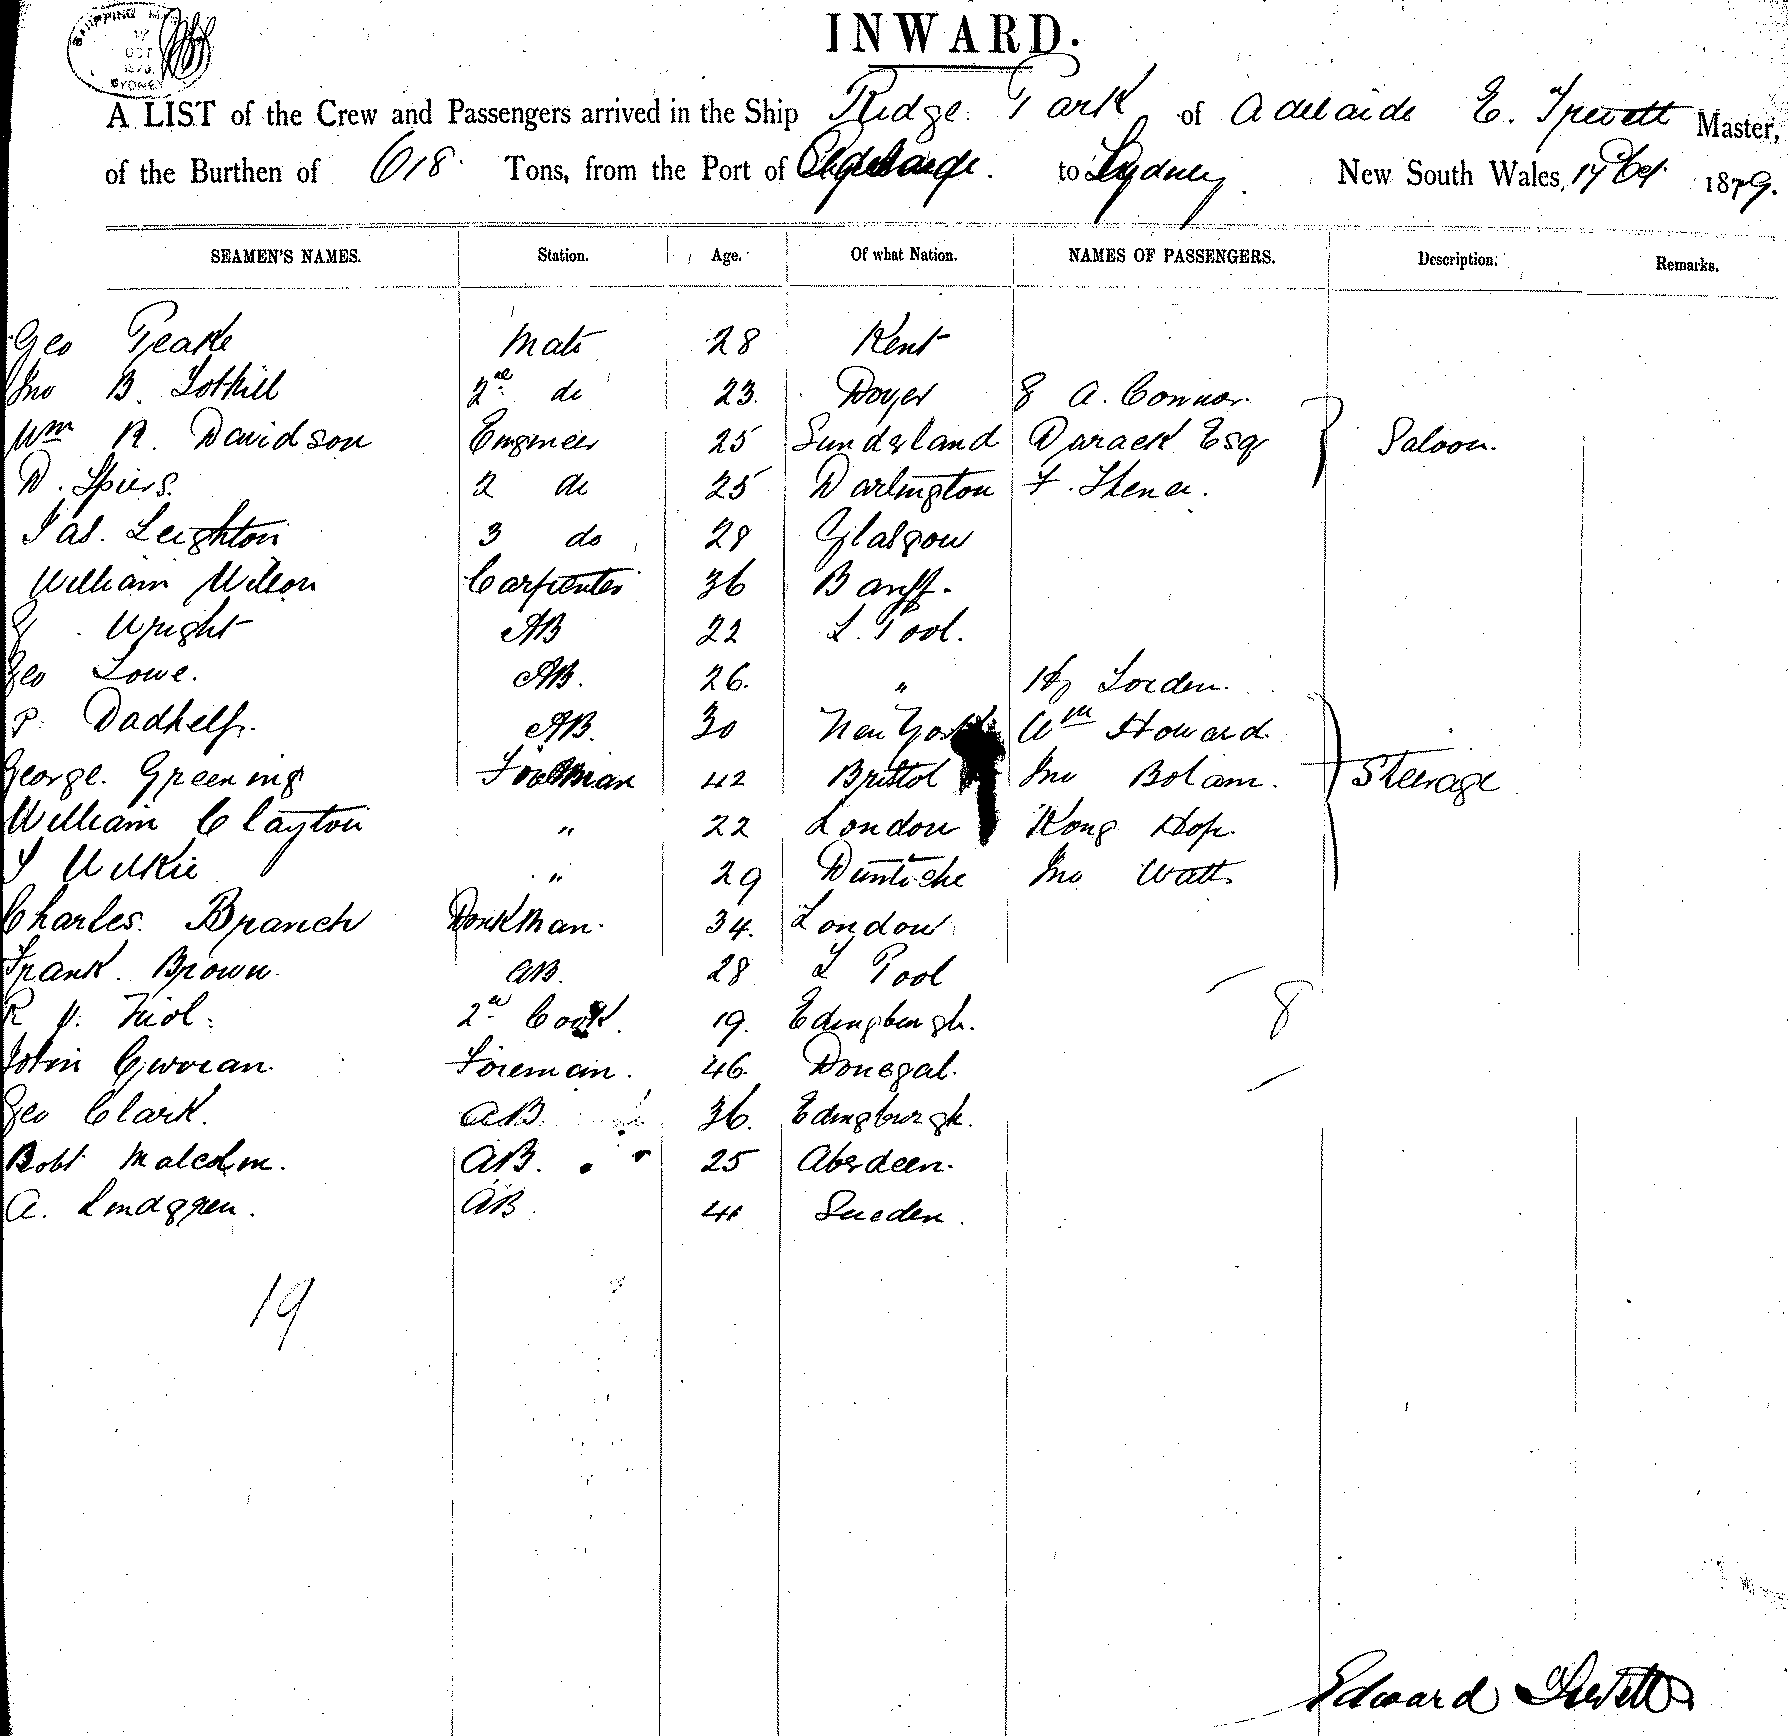 SHIPPING MAS
17
OCT
SYDNEY
INWARD.
A LIST of the Crew and Passengers arrived in the Ship Ridge Park of Adelaide E. Trevett Master,
of the Burthen of 618 Tons, from the Port of to Sydney. New South Wales, 17 Oct 1879.
SEAMEN'S NAMES. Station. Age. Of what Nation. NAMES OF PASSENGERS. Description. Remarks.
Geo Peake Mate 28 Kent
Jno B. Tothill 2nd do 23. Dover A. Connor.
Wm R. Davidson Engineer 25 Sunderland Darack Esq Saloon.
D. Spiers. 2 do 25 Darlington F.
Jas. Leighton 3 do 28 Glasgow
William Wilson Carpenter 36 Banff.
Wright AB 22 L. Pool.
Geo Lowe. AB. 26. "
P. AB. 30 New York Wm Howard
George. Greening 42 Bristol Jno Bolam. Steerage
William Clayton " 22 London Kong Hop.
Wilkie " 29 Jno Watts
Charles. Branch Donkman. 34. London
Frank. Brown. AB. 28 L Pool
R 2nd Cook. 19. Edingburgh.
8
John Foreman. 46. Donegal.
Geo Clark. AB 36. Edingburgh.
Robt Malcolm. AB. 25 Aberdeen.
A. Lindgren. AB Sueden.
19
Edward Trevett